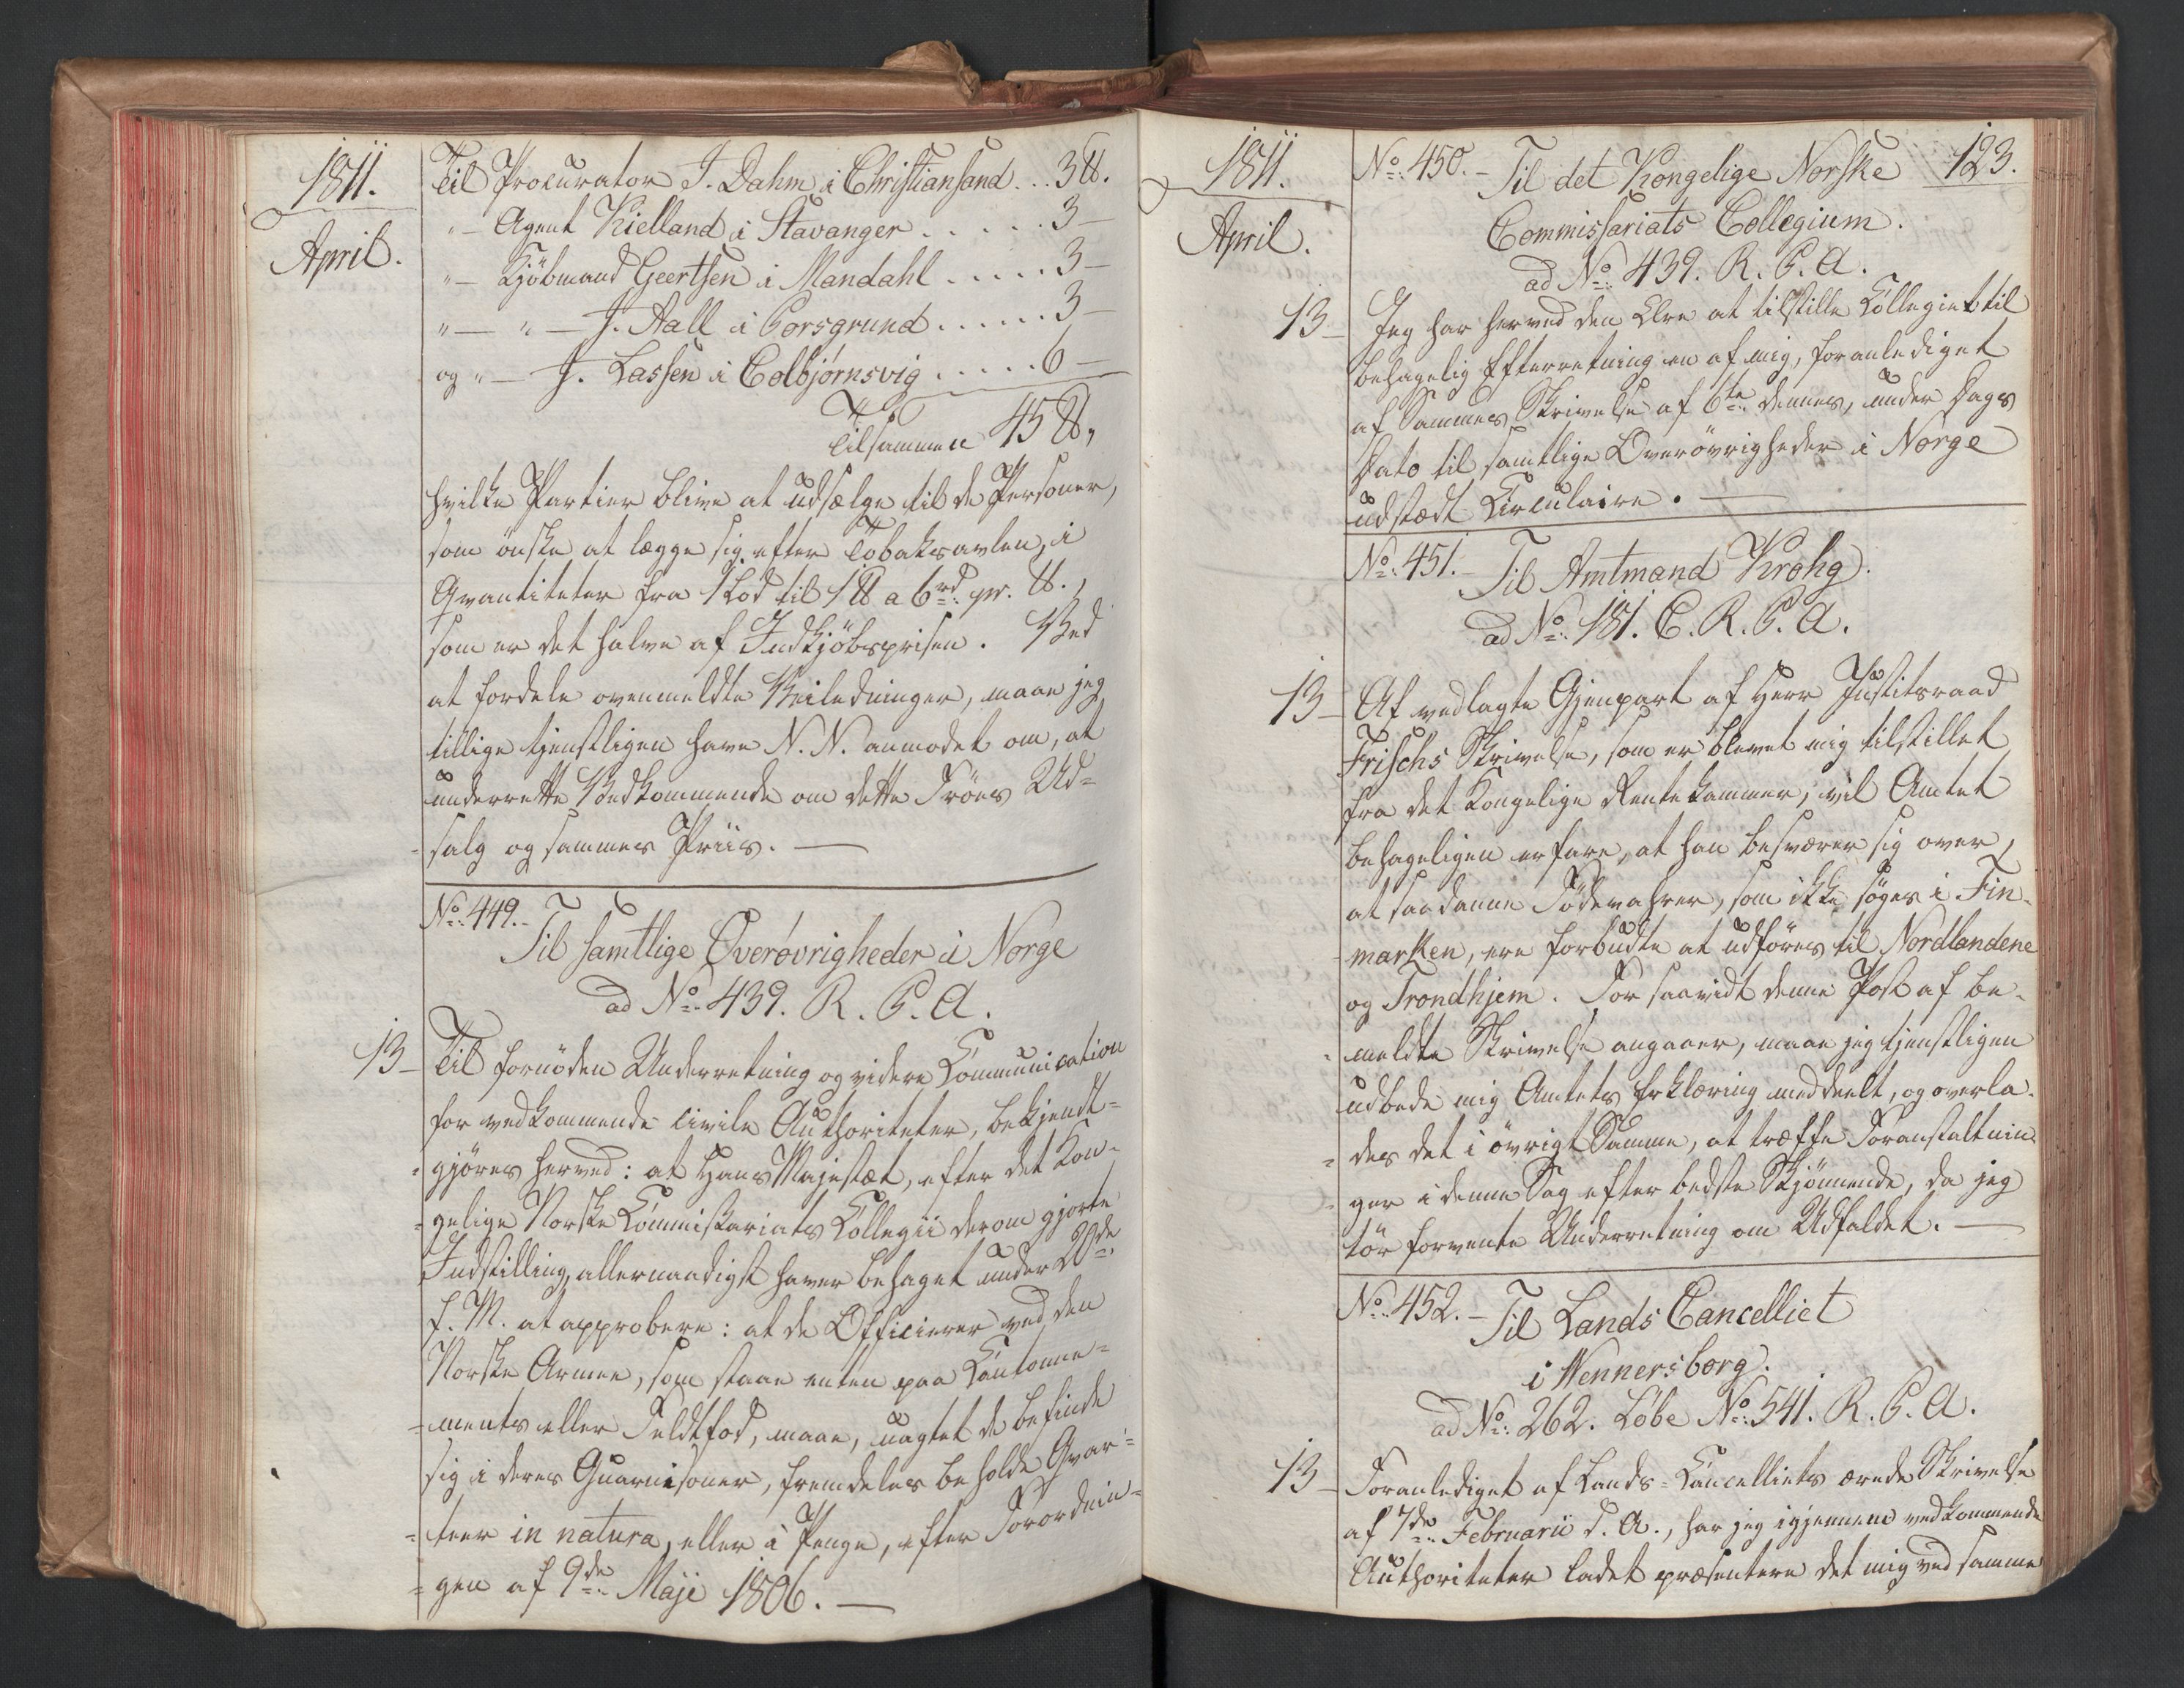 1811.
April.
Til Procurator J. Dahm i Christiansand . . . 3 ℔.
" — Agent Kielland i Stavanger . . . . . 3 —
" — Kjöbmand Geertsen i Mandahl . . . . . 3 —
" — " — J. Aall i Porsgrund . . . . . . 3 —
og " — J. Lassen i Colbjørnsvig . . . . . 6 —
Tilsammen 45 ℔,
hvilke Partier blive at udsælge til de Personer,
som önske at lægge sig efter Tobaksavlen, i
Qvantiteter fra 1 Lod til 1 ℔ a 6 rd. pr. ℔.,
som er det halve af Indkjöbsprisen. Ved
at fordele ovenmeldte Veiledninger, maae jeg
tillige tjenstligen have N. N. anmodet om, at
underrette Vedkommende om dette Fröes Ud=
salg og sammes Priis. —
No. 449. -
Til samtlige Øverövrigheder i Norge
ad No. 439. R. P. A.
13 — Til fornöden Underretning og videre Communication
for vedkommende civile Authoriteter, bekjendt=
=gjöres herved: at Hans Majestæt, efter det Kon=
=gelige Norske Commissariats Collegii derom gjorte
Indstilling, allernaadigst haver behaget under 20de
f. M. at approbere: at de Officierer ved den
Norske Armee, som staae enten paa Cantonne=
=ments eller Feldtfod, maae, uagtet de befinde
sig i deres Guarnisoner, fremdeles beholde Qvar=
=teer in natura, eller i Penge, efter Forordnin=
=gen af 9de Maji 1806. —
1811.
April.
123.
No. 450. - Til det Kongelige Norske
Commissariats Collegium.
ad No. 439. R. P. A.
13 — Jeg har herved den Ære at tilstille Collegiet til
behagelig Efterretning en af mig, foranlediget
af Sammes Skrivelse af 6te dennes, under Dags
Dato til samtlige Overövrigheder i Norge
udstædt Circulaire. —
No. 451. - Til Amtmand Krohg.
ad No. 181. C. R. P. A.
13 — Af vedlagte Gjenpart af Herr Justitsraad
Frischs Skrivelse, som er blevet mig tilstillet
fra det Kongelige Rentekammer, vil Amtet
behageligen erfare, at han besværer sig over,
at saadanne Födevahrer, som ikke söges i Fin=
marken, ere forbudte at udföres til Nordlandene
og Trondhjem. For saavidt denne Post af be=
=meldte Skrivelse angaaer, maae jeg tjenstligen
udbede mig Amtets Erklæring meddeelt, og overla=
=des det i övrigt Samme, at træffe Foranstaltnin=
=ger i denne Sag efter bedste Skjönnende, da jeg
tör forvente Underretning om Udfaldet. —
No. 452. - Til Lands Cancelliet
i Wennersborg.
ad No. 262. Løbe No. 541. R. P. A.
13 — Foranlediget af Lands=Cancelliets ærede Skrivelse
af 7de Februarii d. A., har jeg igjennem vedkommende
Authoriteter ladet præsentere det mig ved samme